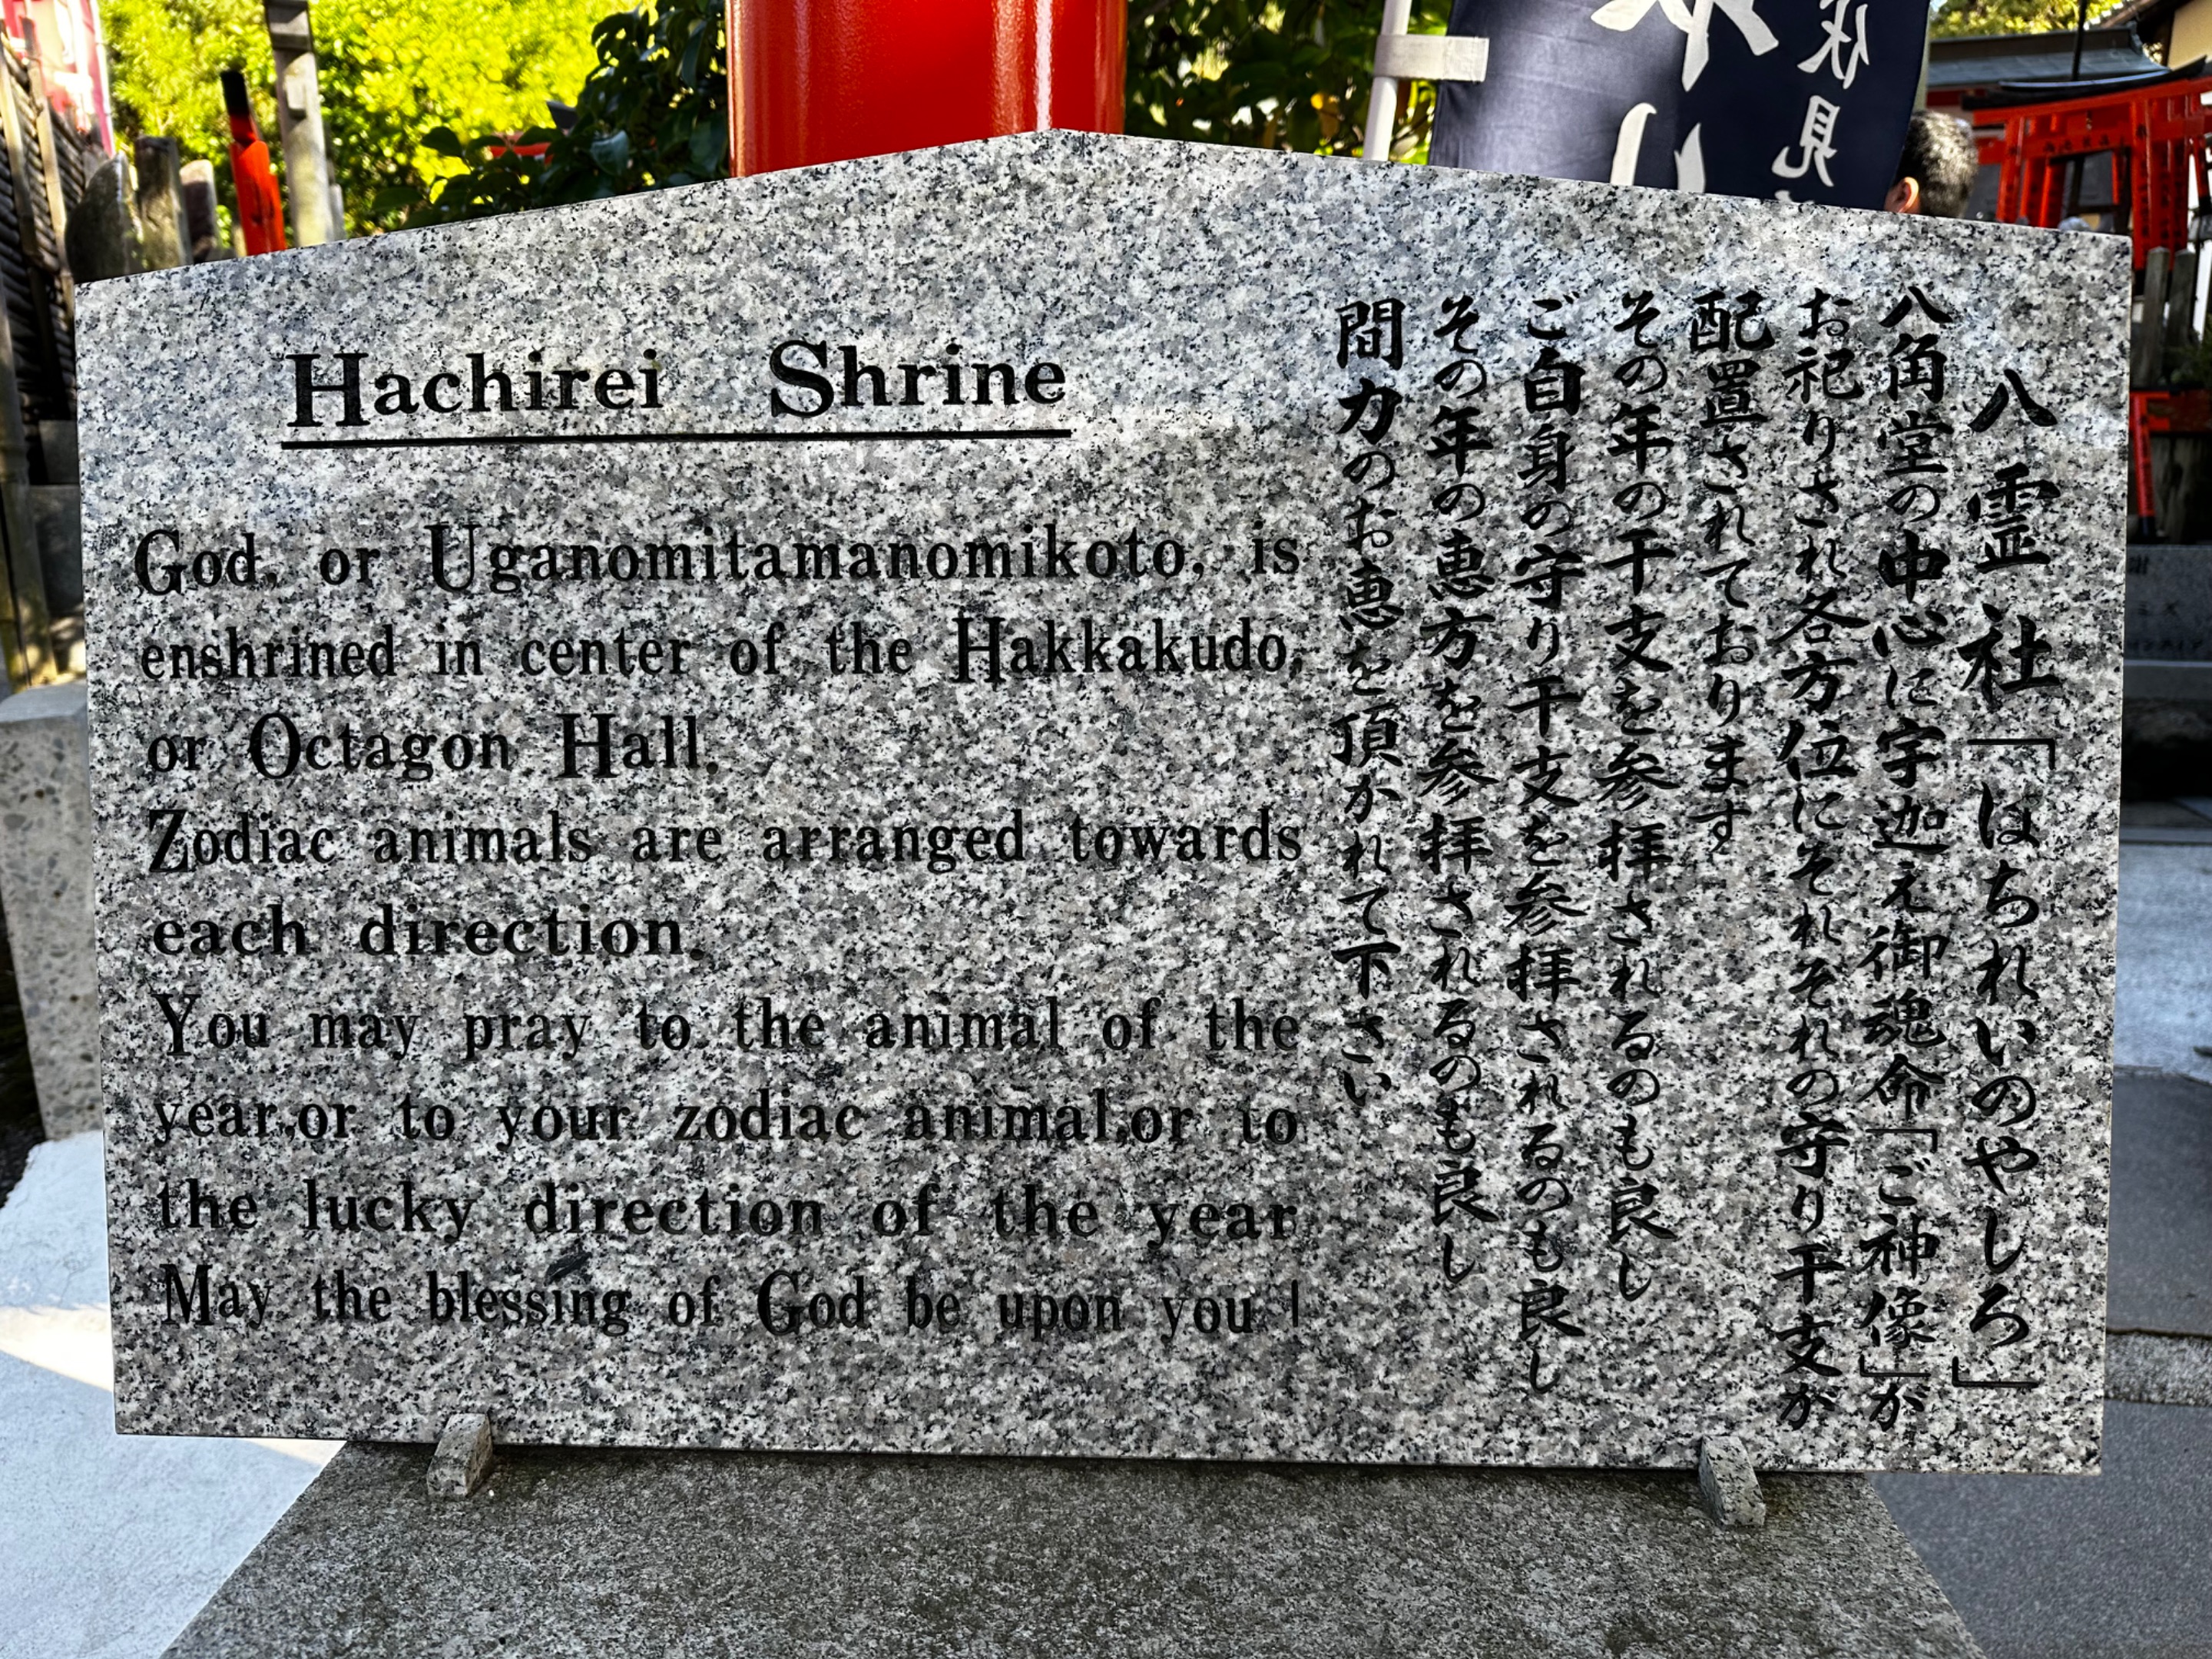 Hachirei Shrine
God, or Uganomitamanomikoto, is
enshrined in center of the Hakkakudo,
or Octagon Hall.
Zodiac animals are arranged towards
each direction.
You may pray to the animal of the
year,or to your zodiac animal,or to
the lucky direction of the year
May the blessing of God be upon you !
八霊社「はちれいのやしろ」
八角堂の中心に宇迦之御魂命「ご神像」が
お祀りされ各方位にそれぞれの守り干支が
配置されております
その年の干支を参拝されるのも良し
ご自身の守り干支を参拝されるのも良し
その年の恵方を参拝されるのも良し
間力のお恵を頂かれて下さい
伏見